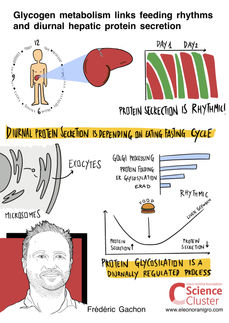 Glycogen metabolism links feeding rhythms
and diurnal hepatic protein secretion
12
9
3
6
DAY 1 DAY 2
PROTEIN SECRECTION IS RHYTHMIC!
DIURNAL PROTEIN SECRETION IS DEPENDING ON EATING FASTING CYCLE
EXOCYTES
MICROSOMES
GOLGI PROCESSING
PROTEIN FOLDING
ER GLYCOSILATION
ERAD
RHYTHMIC
FOOD
LIVER GLYCOGEN
PROTEIN
SECRETION
PROTEIN
SECRETION
PROTEIN GLYCOSILATION IS A
DIURNALLY REGULATED PROCESS
Frédéric Gachon
Science
Cluster
www.eleonoranigro.com